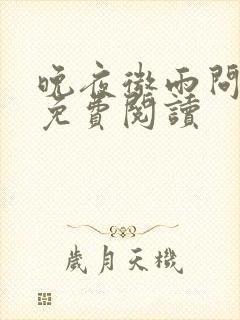 晚夜微雨問
免費閱讀
歲月天機